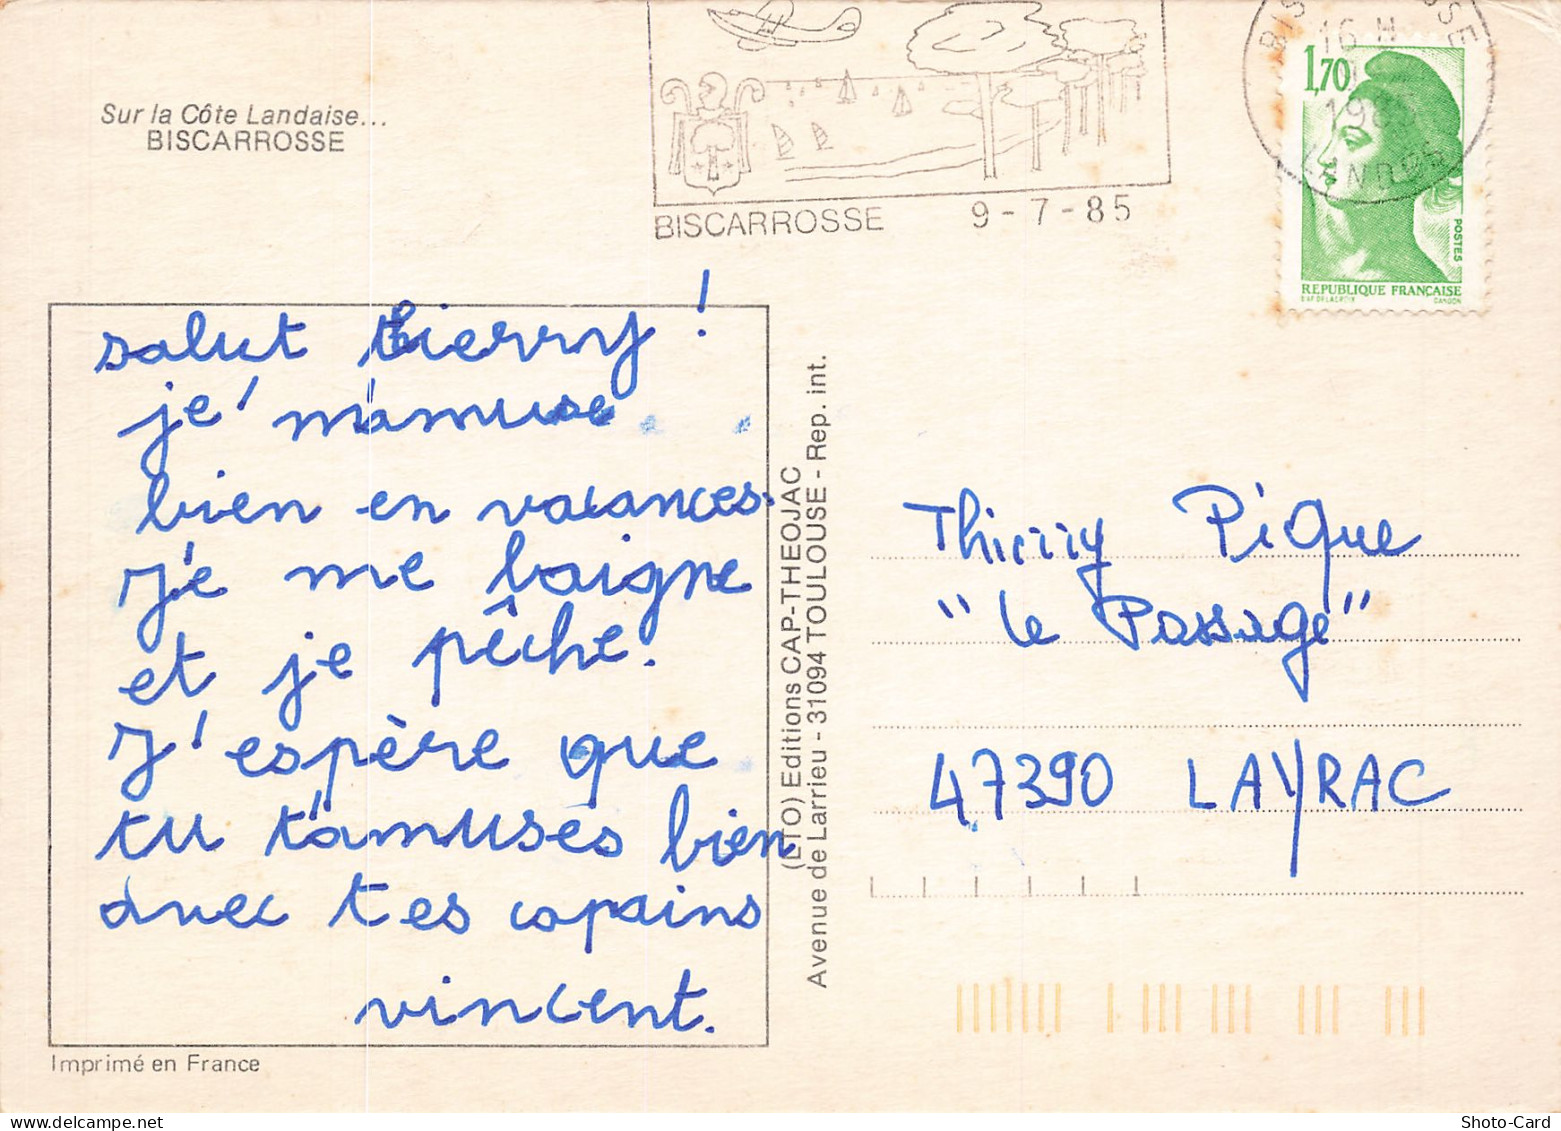 Sur la Côte Landaise...
BISCARROSSE
BISCARROSSE 9-7-85
16 H
LANDES
1,70
POSTES
REPUBLIQUE FRANÇAISE
D'AP. DELACROIX GANDON
salut tierry !
je' m'amuse
bien en vacances.
j'e me baigne
et je pêche.
J'espère que
tu t'amuses bien
avec tes copains
vincent.
Imprimé en France
(LTO) Editions CAP-THEOJAC
Avenue de Larrieu - 31094 TOULOUSE - Rep. int.
Thierry Pique
"Le Passage"
47390 LAYRAC
Shoto-Card